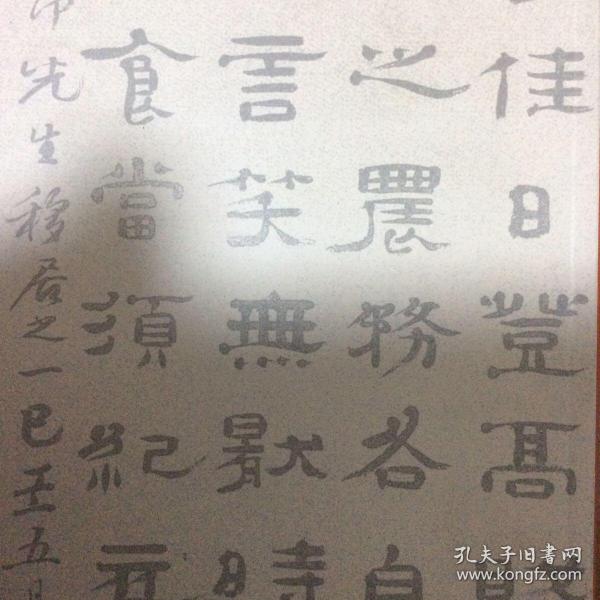 佳日登高
之農務各自
言笑無厭時
食當須紀
先生移居之一巳壬五
孔夫子旧書网
www.kongfz.com